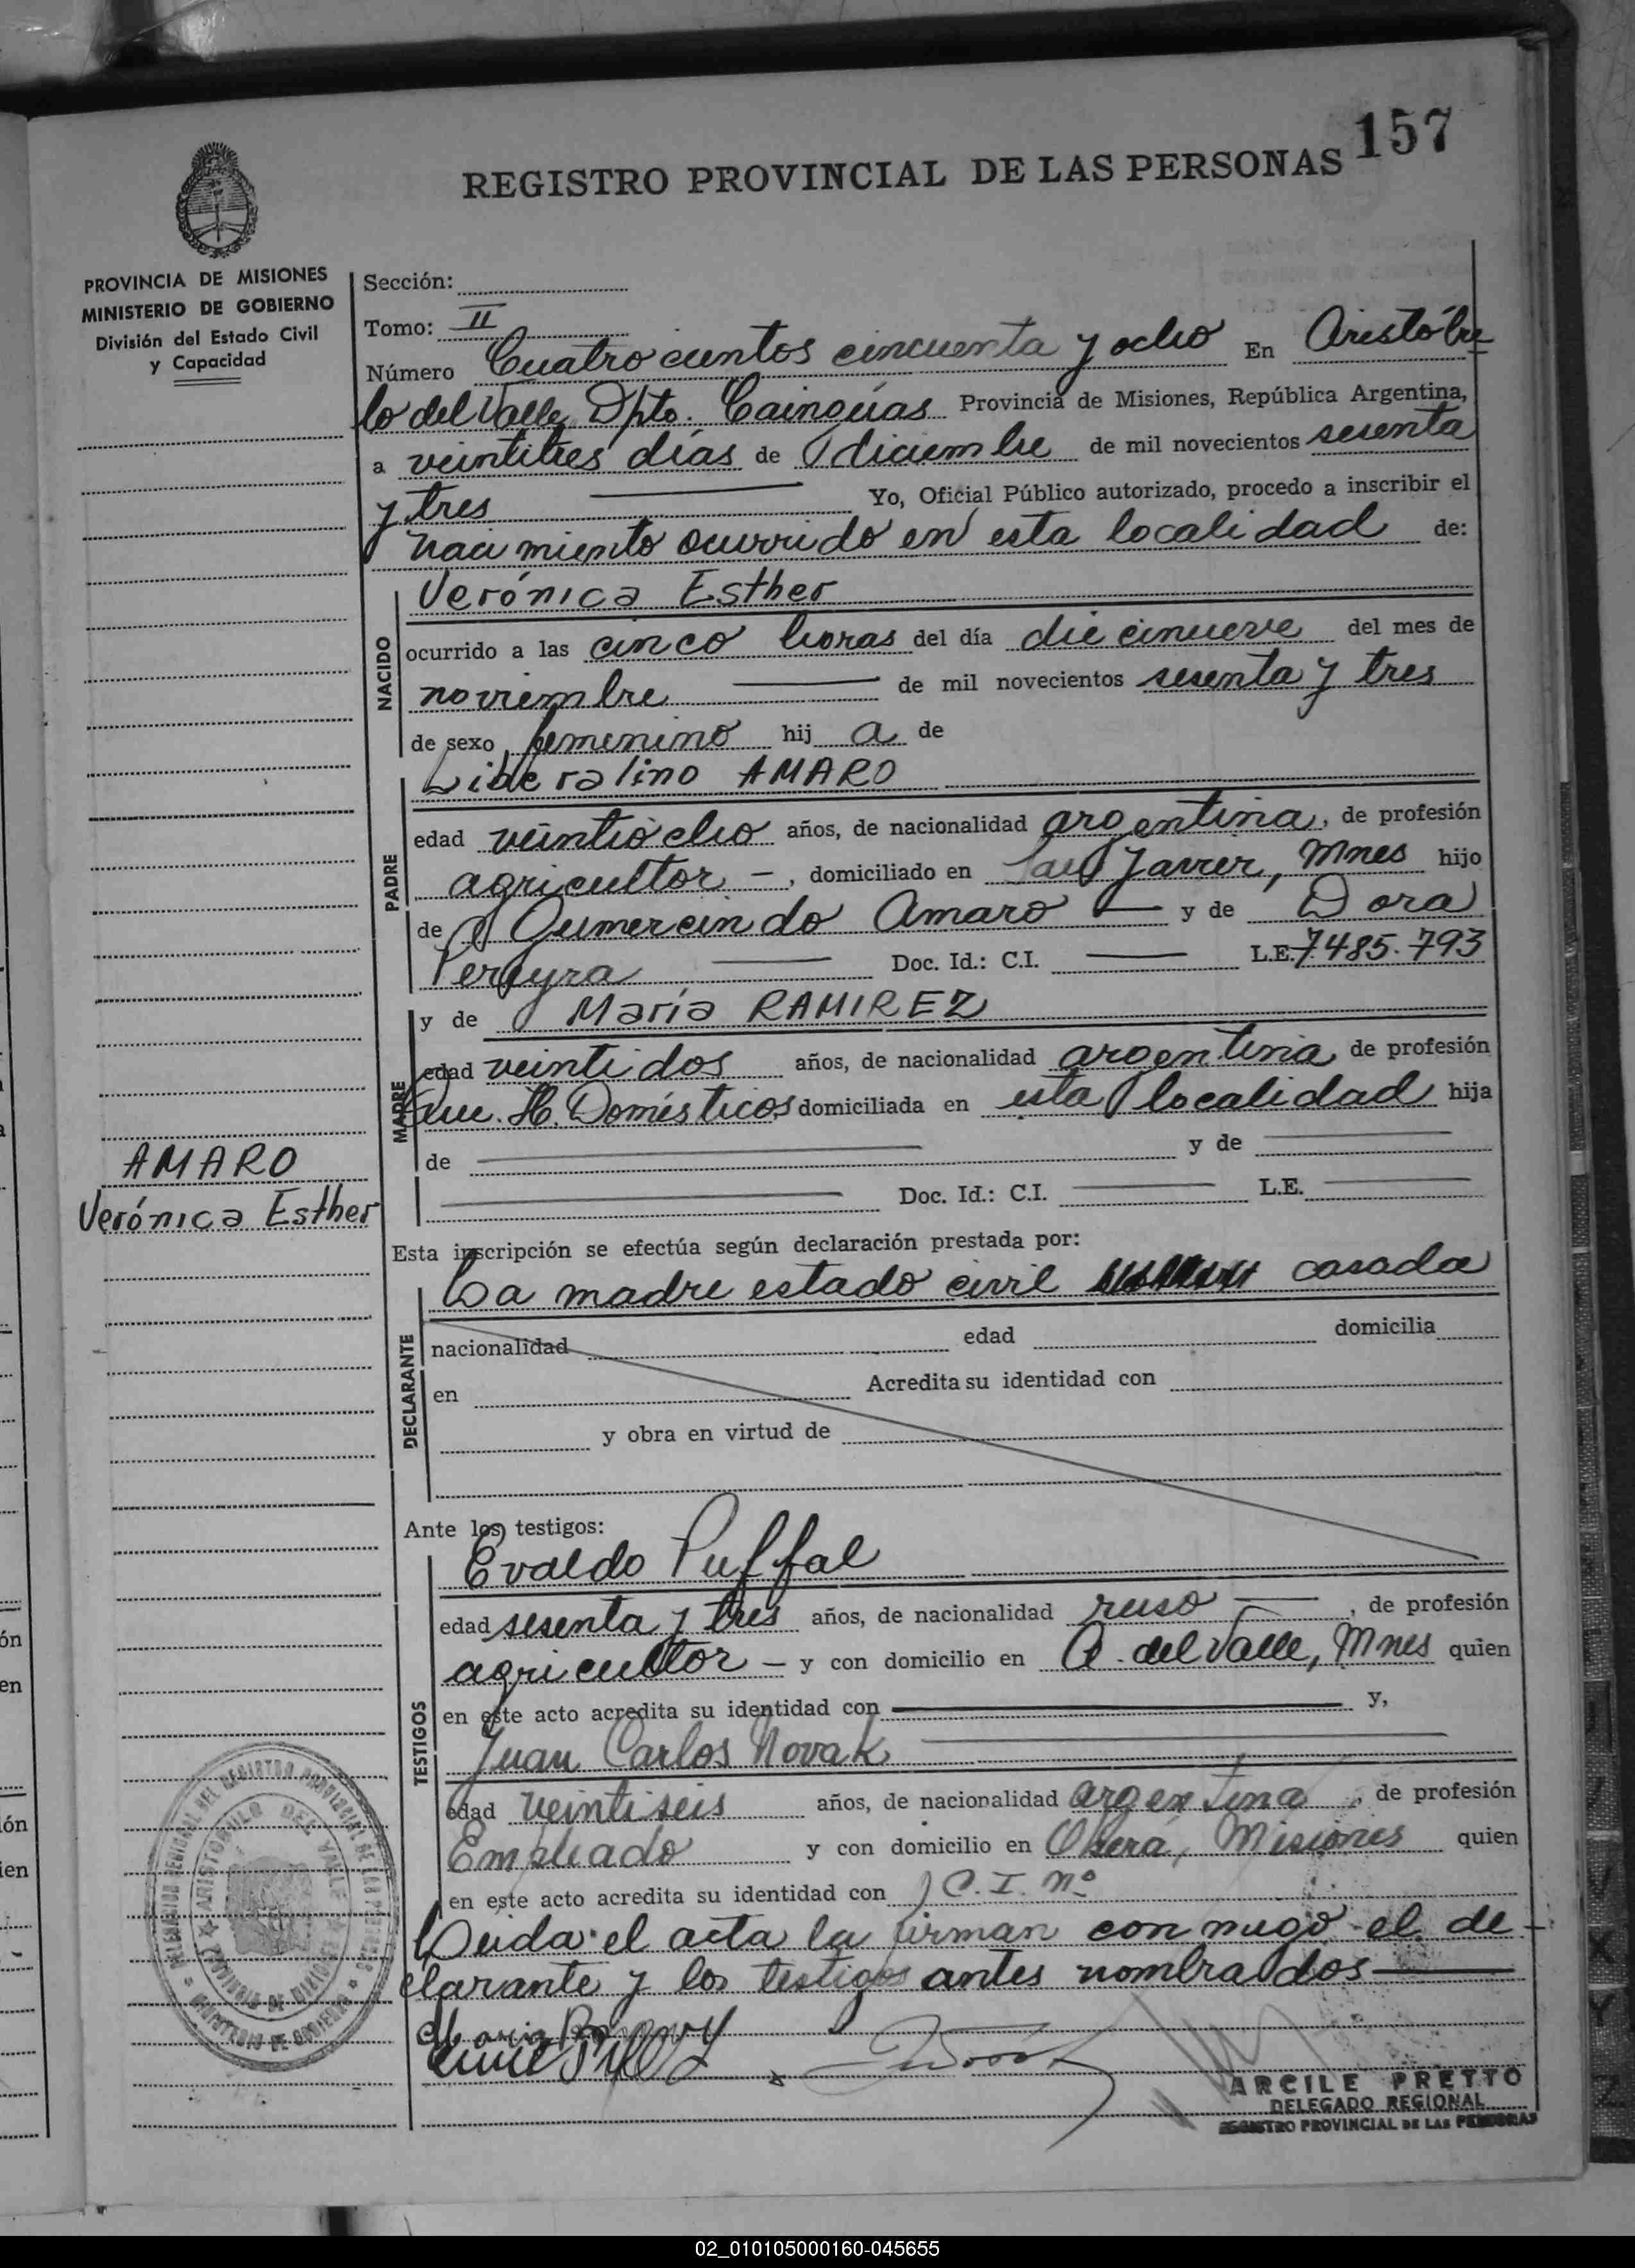 157
REGISTRO PROVINCIAL DE LAS PERSONAS
PROVINCIA DE MISIONES
MINISTERIO DE GOBIERNO
División del Estado Civil
y Capacidad
Sección:
Tomo: II
Número Cuatrocientos cincuenta y ocho En Aristóbu
lo del Valle, Dpto. Cainguas Provincia de Misiones, República Argentina,
a veintitres días de diciembre de mil novecientos sesenta
y tres Yo, Oficial Público autorizado, procedo a inscribir el
nacimiento ocurrido en esta localidad de:
NACIDO
Verónica Esther
ocurrido a las cinco horas del día diecinueve del mes de
noviembre de mil novecientos sesenta y tres
de sexo femenino hij a de
PADRE
Liberalino AMARO
edad veintiocho años, de nacionalidad argentina, de profesión
agricultor -, domiciliado en San Javier, Mnes hijo
de Gumercindo Amaro y de Dora
Pereyra Doc. Id.: C.I. L.E. 7.485.793
MADRE
y de María RAMIREZ
edad veintidos años, de nacionalidad argentina, de profesión
Domésticos domiciliada en esta localidad hija
de y de
Doc. Id.: C.I. L.E.
AMARO
Verónica Esther
Esta inscripción se efectúa según declaración prestada por:
DECLARANTE
La madre estado civil casada
nacionalidad edad domicilia
en Acredita su identidad con
y obra en virtud de
Ante los testigos:
TESTIGOS
Evaldo Puffal
edad sesenta y tres años, de nacionalidad ruso, de profesión
agricultor - y con domicilio en A. del Valle, Mnes quien
en este acto acredita su identidad con y,
Juan Carlos Novak
edad veintiseis años, de nacionalidad argentina, de profesión
Empleado y con domicilio en Oberá, Misiones quien
en este acto acredita su identidad con C.I. Nº
Leida el acta la firman conmigo el de-
clarante y los testigos antes nombrados
ARISTOBULO DEL VALLE
MINISTERIO DE GOBIERNO
ARCILE PRETTO
DELEGADO REGIONAL
REGISTRO PROVINCIAL DE LAS PERSONAS
02_010105000160-045655